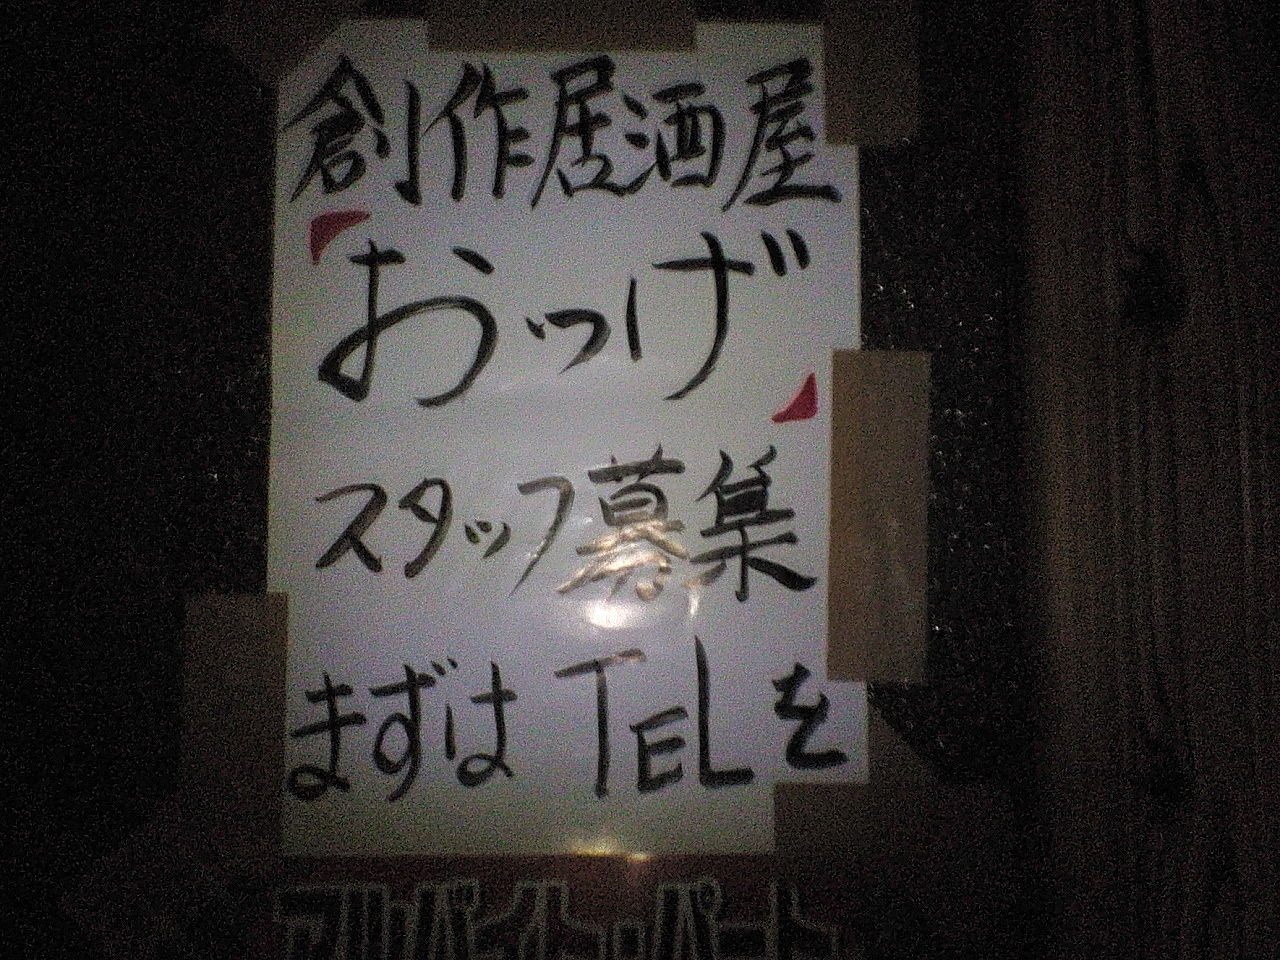 創作居酒屋
「おっげ」
スタッフ募集
まずはTELを
アルバイト・パート